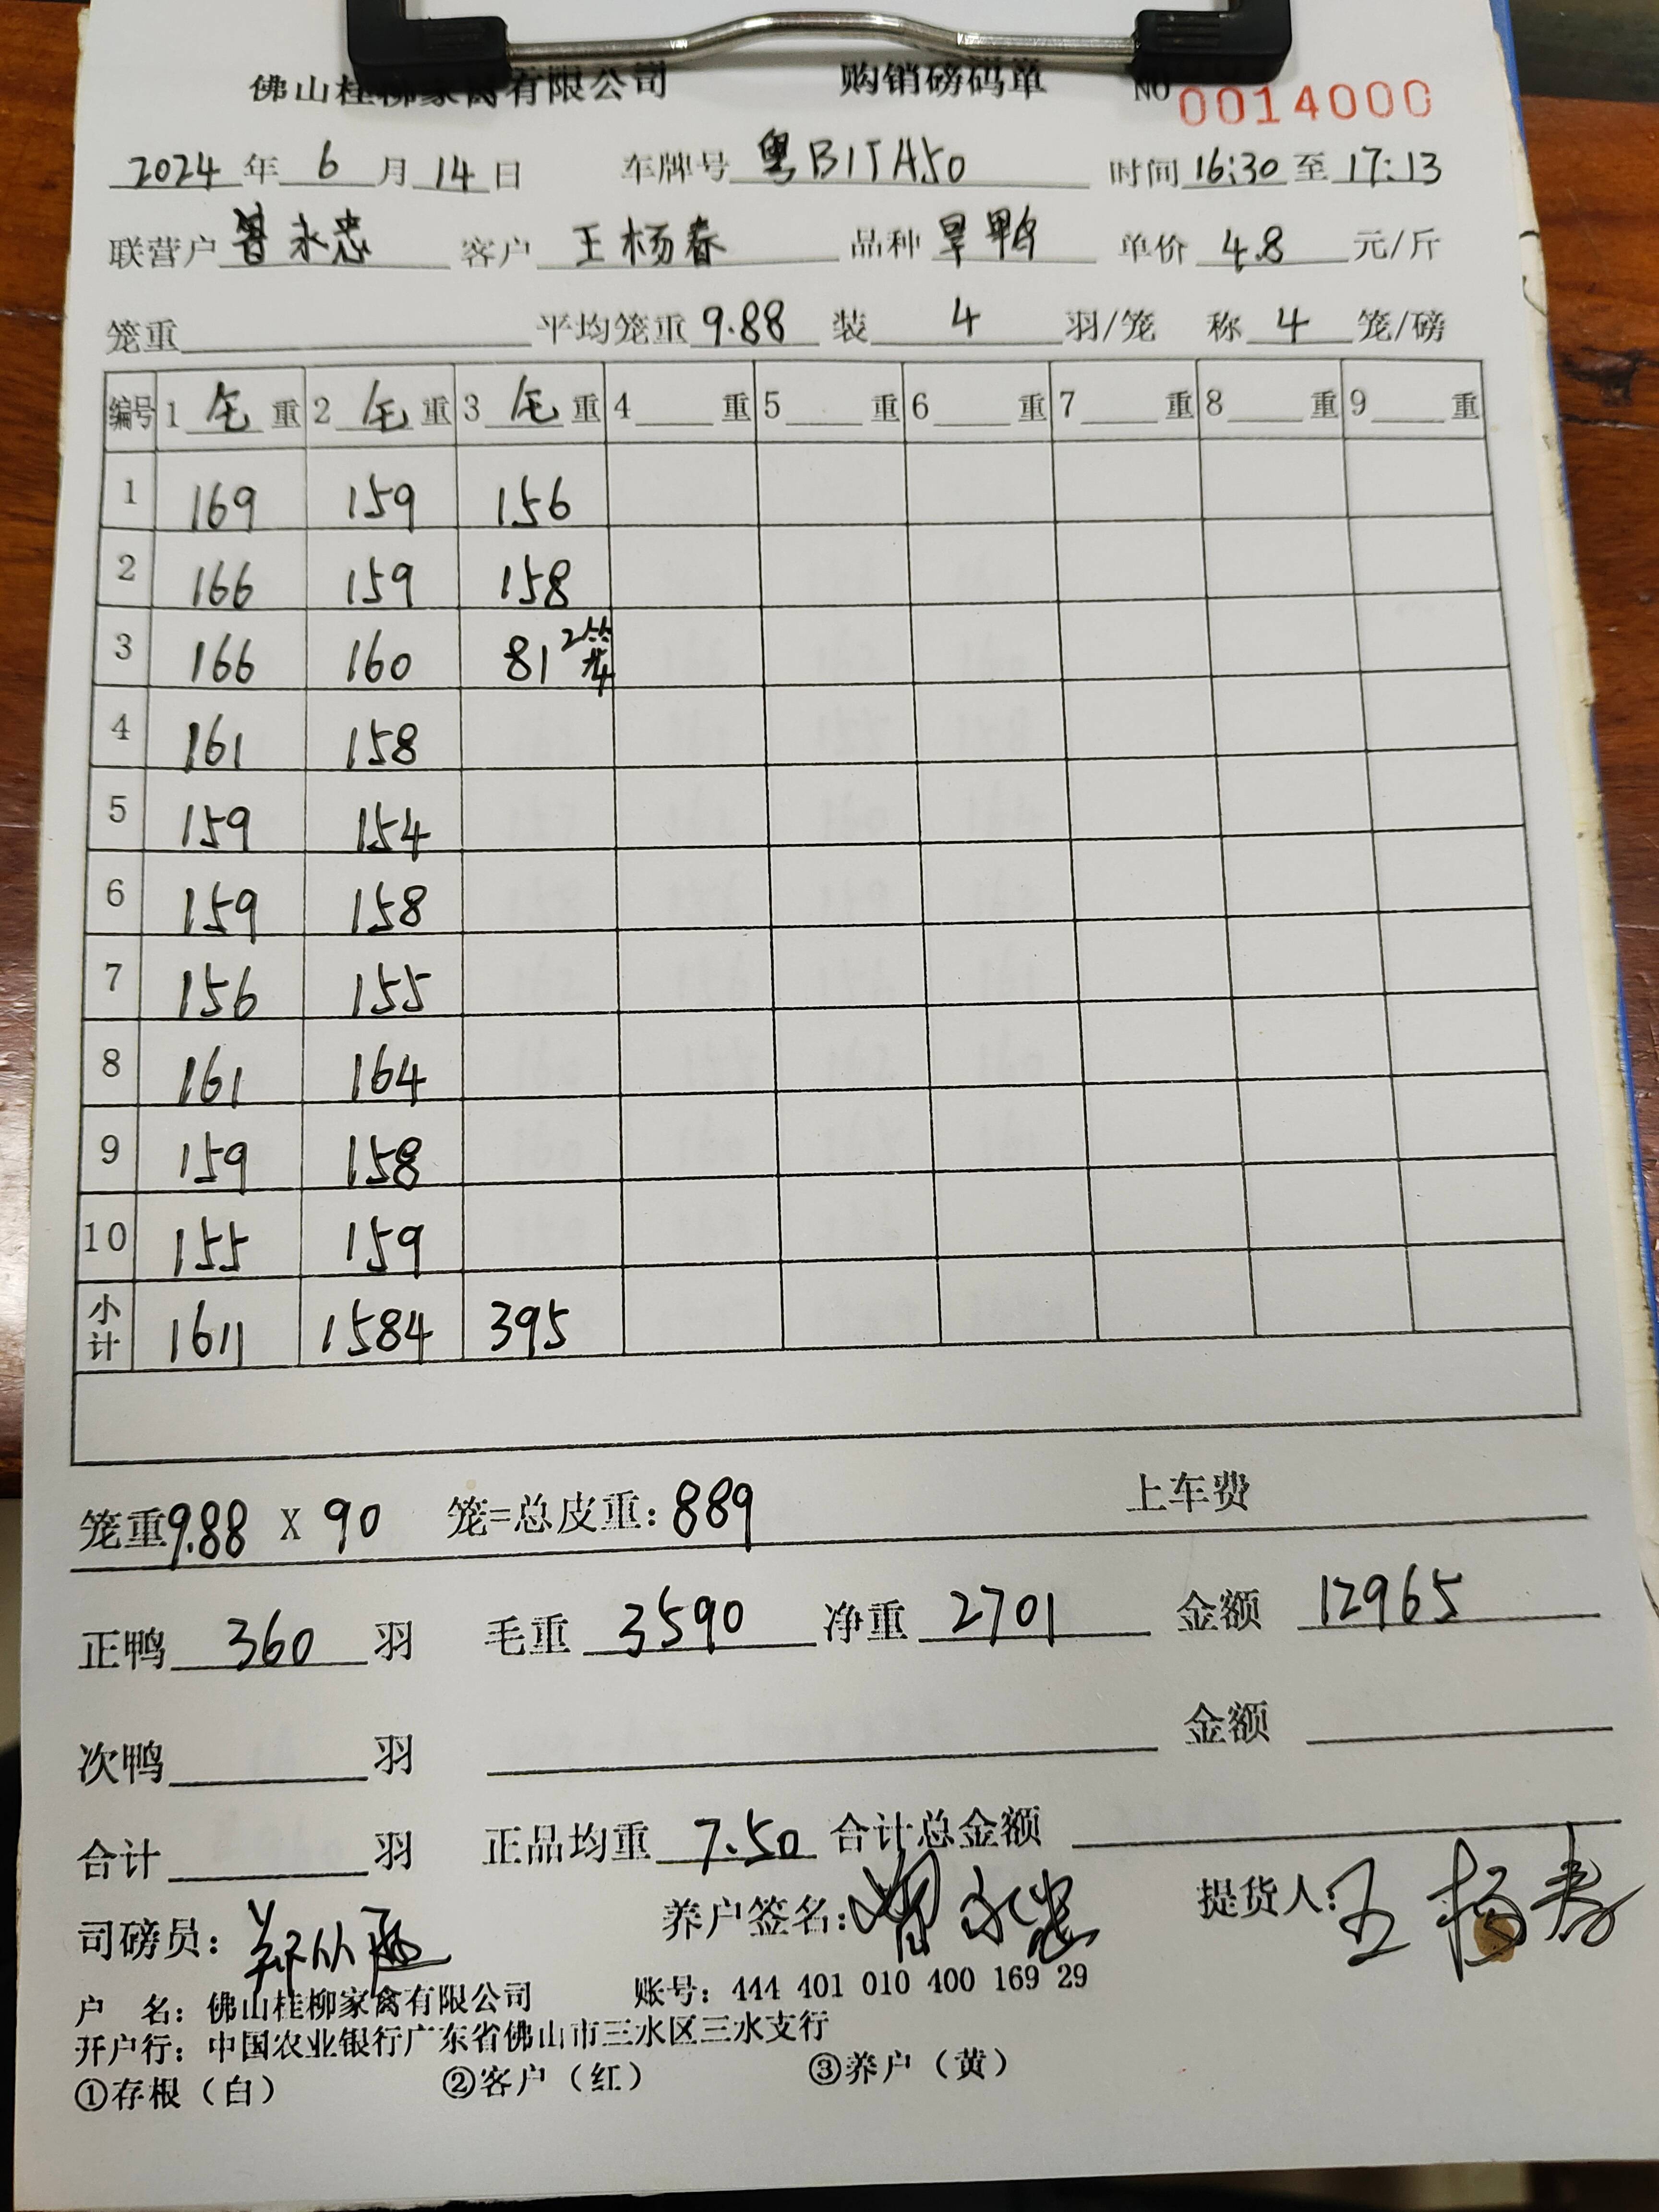 佛山桂柳家禽有限公司 购销磅码单 NO 0014000
2024年6月14日 车牌号 粤B1TA50 时间 16:30 至 17:13
联营户 曾永忠 客户 王杨春 品种 旱鸭 单价 4.8 元/斤
笼重 平均笼重 9.88 装 4 羽/笼 称 4 笼/磅
编号 1 毛 重 2 毛 重 3 毛 重 4 重 5 重 6 重 7 重 8 重 9 重
1 169 159 156
2 166 159 158
3 166 160 81 2笼
4 161 158
5 159 154
6 159 158
7 156 155
8 161 164
9 159 158
10 155 159
小计 1611 1584 395
笼重 9.88 X 90 笼=总皮重: 889 上车费
正鸭 360 羽 毛重 3590 净重 2701 金额 12965
次鸭 羽 金额
合计 羽 正品均重 7.50 合计总金额
司磅员: 养户签名: 曾永忠 提货人: 王杨春
户 名: 佛山桂柳家禽有限公司 账号: 444 401 010 400 169 29
开户行: 中国农业银行广东省佛山市三水区三水支行
①存根（白） ②客户（红） ③养户（黄）